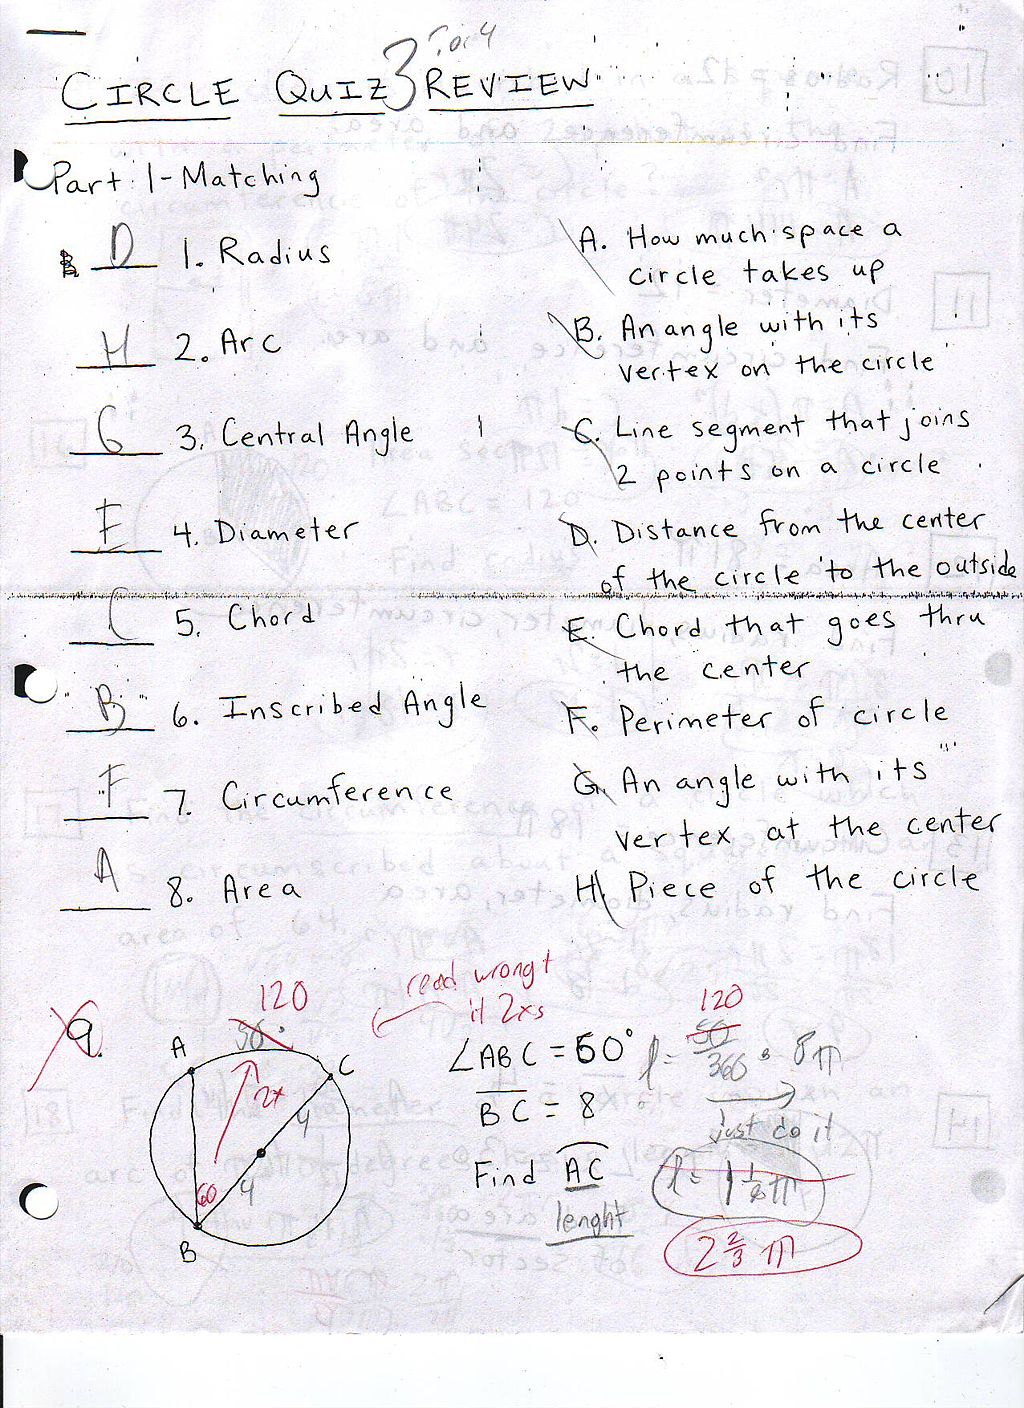 3 For 4
CIRCLE QUIZ REVIEW
Part 1 - Matching
D 1. Radius
H 2. Arc
G 3. Central Angle
E 4. Diameter
C 5. Chord
B 6. Inscribed Angle
F 7. Circumference
A 8. Area
A. How much space a
circle takes up
B. An angle with its
vertex on the circle
C. Line segment that joins
2 points on a circle
D. Distance from the center
of the circle to the outside
E. Chord that goes thru
the center
F. Perimeter of circle
G. An angle with its
vertex at the center
H. Piece of the circle
9.
120
A
C
2x
4
60
4
B
read wrong
it 2xs
∠ABC = 60°
BC = 8
Find AC
lenght
120
l = 50/360 · 8π
just do it
l = 1 1/8 π
2 2/3 π